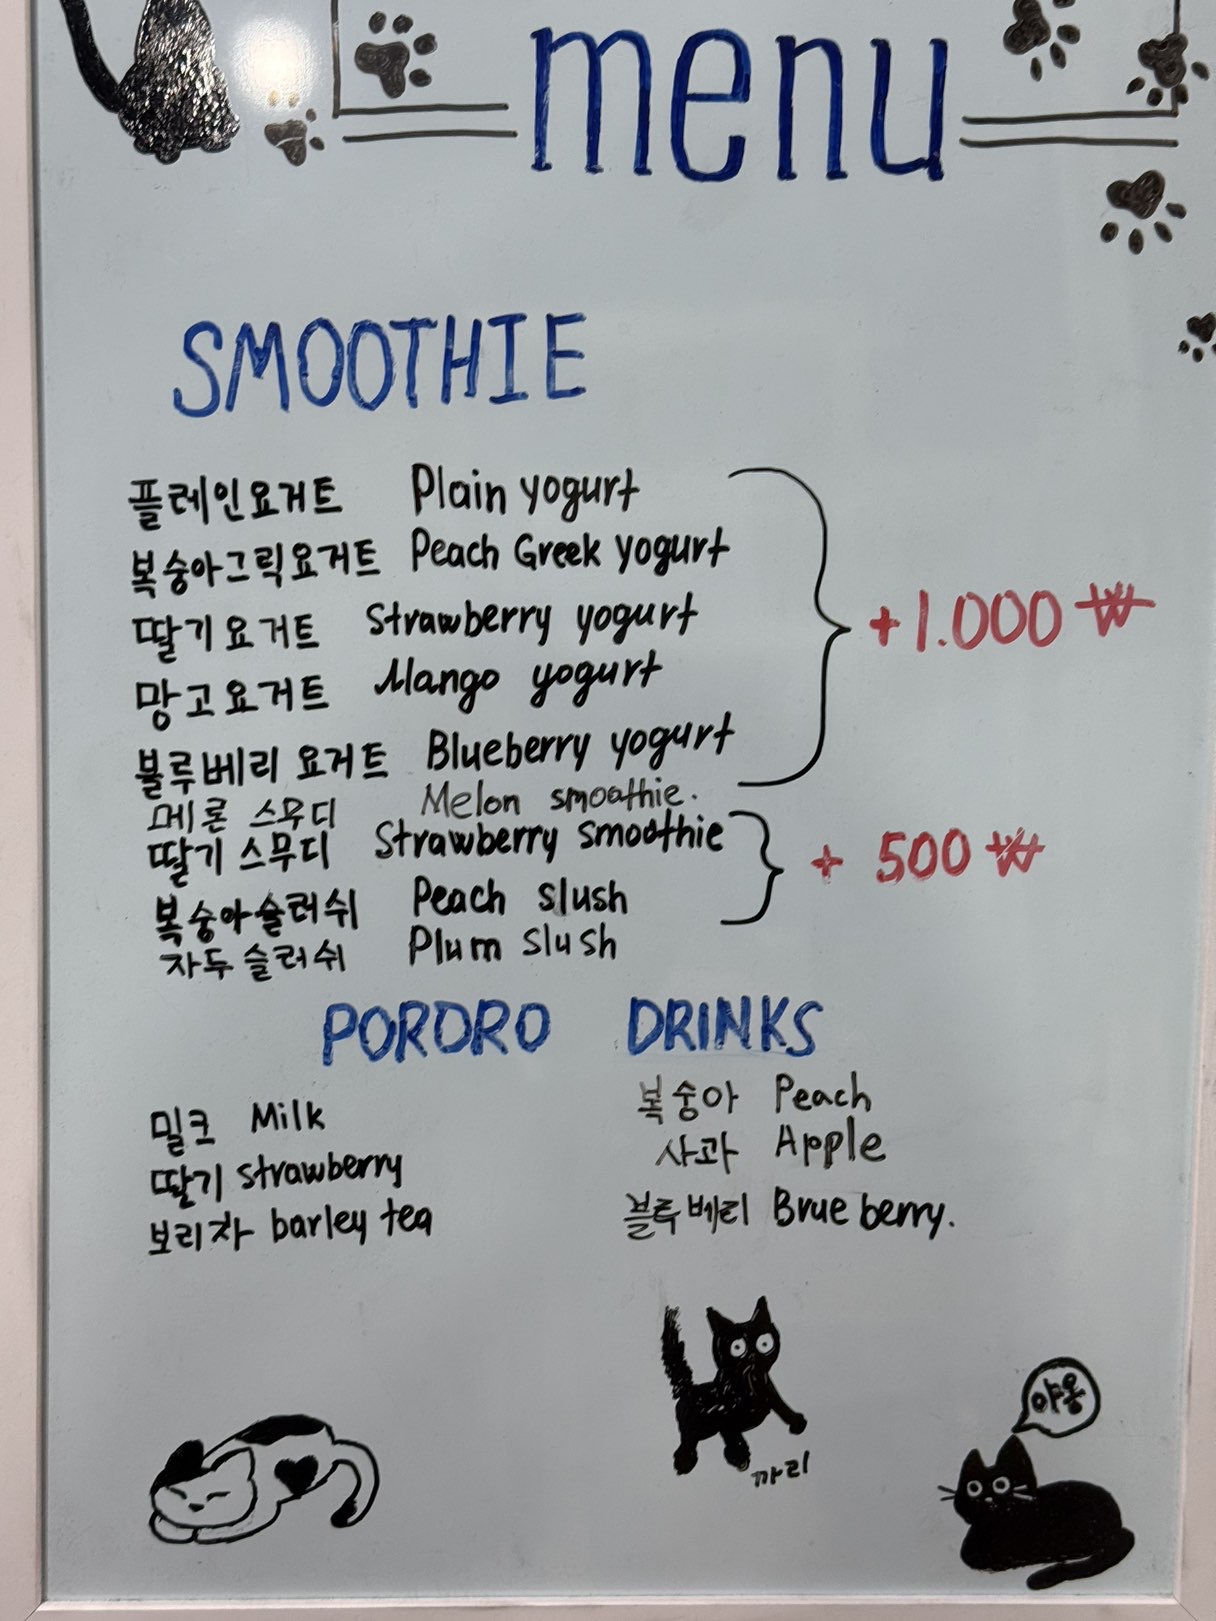 menu
SMOOTHIE
플레인요거트 Plain yogurt
복숭아그릭요거트 Peach Greek yogurt
딸기요거트 Strawberry yogurt
+1.000 ₩
망고요거트 Mango yogurt
블루베리 요거트 Blueberry yogurt
메론 스무디 Melon smoothie.
딸기 스무디 Strawberry smoothie
+ 500 ₩
복숭아슬러쉬 Peach slush
자두슬러쉬 Plum slush
PORORO DRINKS
밀크 Milk
딸기 strawberry
보리차 barley tea
복숭아 Peach
사과 Apple
블루베리 Brue berry.
까리
야옹